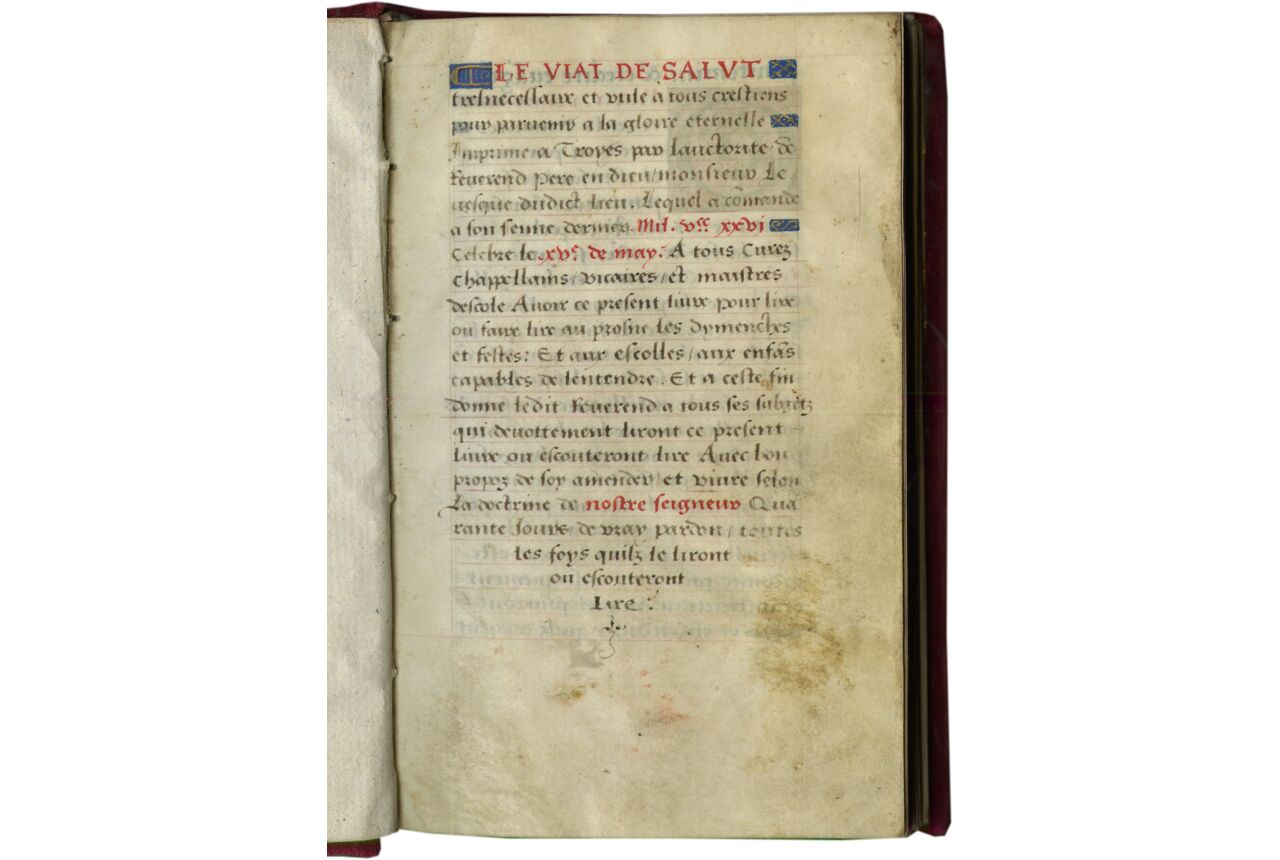 LE VIAT DE SALVT
tresnecessaire et vtile a tous crestiens
pour paruenir a la gloire eternelle
Imprime a Troyes par lauctorite de
Reuerend Pere en dieu/monsieur Le
uesque dudict lieu. Lequel a cōmande
a son senne dernier. Mil. vᶜᶜ xxvi
Celebre le xvᵉ de may. A tous Curez
Chappellains/vicaires/et maistres
descole Auoir ce present liure pour lire
ou faire lire au prosne les dymenches
et festes: Et aux escolles/aux enfās
capables de lentendre. Et a ceste fin
donne ledit Reuerend a tous ses subgetz
qui deuottement liront ce present
liure ou escouteront lire Auec bon
propoz de soy amender/et viure selon
La doctrine de nostre seigneur Qua
rante Jours de vray pardon/toutes
les foys quilz le liront
ou escouteront
Lire.